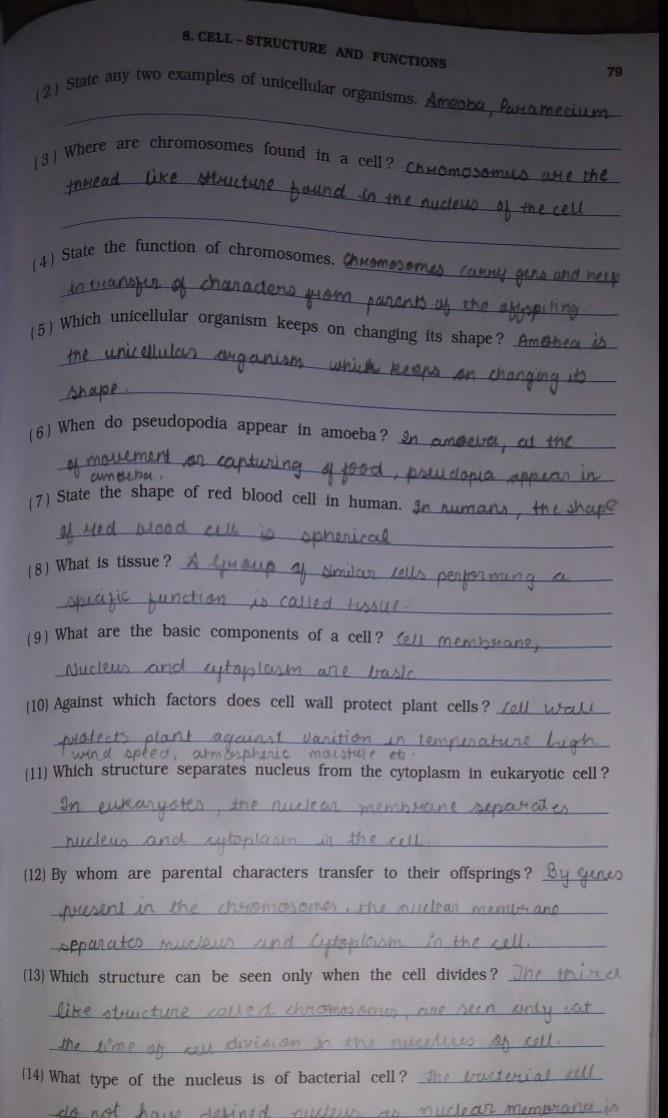 8. CELL – STRUCTURE AND FUNCTIONS
79
(2) State any two examples of unicellular organisms. Amoeba, Paramecium
(3) Where are chromosomes found in a cell? Chromosomus are the
thread like structure found in the nucleus of the cell
(4) State the function of chromosomes. Chromosomes carry gens and help
in transfer of characters from parents of the offspiting
(5) Which unicellular organism keeps on changing its shape? Amobea is
the unicellular organism which keeps on changing its
shape.
(6) When do pseudopodia appear in amoeba? In amoeba, at the
of movement or capturing of food, pseudopia appear in
amoeba.
(7) State the shape of red blood cell in human. In humans, the shape
of red blood cell is spherical
(8) What is tissue? A Group of similar cells performing a
specific function is called tissue.
(9) What are the basic components of a cell? Cell membrane,
Nucleus and cytoplasm are basic
(10) Against which factors does cell wall protect plant cells? Cell wall
protects plant against varition in temperature high
wind speed, atmospheric moisture etc.
(11) Which structure separates nucleus from the cytoplasm in eukaryotic cell?
In eukaryotes, the nuclear membrane separates
nucleus and cytoplasm in the cell.
(12) By whom are parental characters transfer to their offsprings? By genes
present in the chromosomes, the nuclear membrane
separates nucleus and Cytoplasm in the cell.
(13) Which structure can be seen only when the cell divides? The third
like structure called chromosomes, are seen only at
the time of cell division in the nucelues of cell.
(14) What type of the nucleus is of bacterial cell? The bacterial cell
do not have defined nucleus as nuclear membrane is